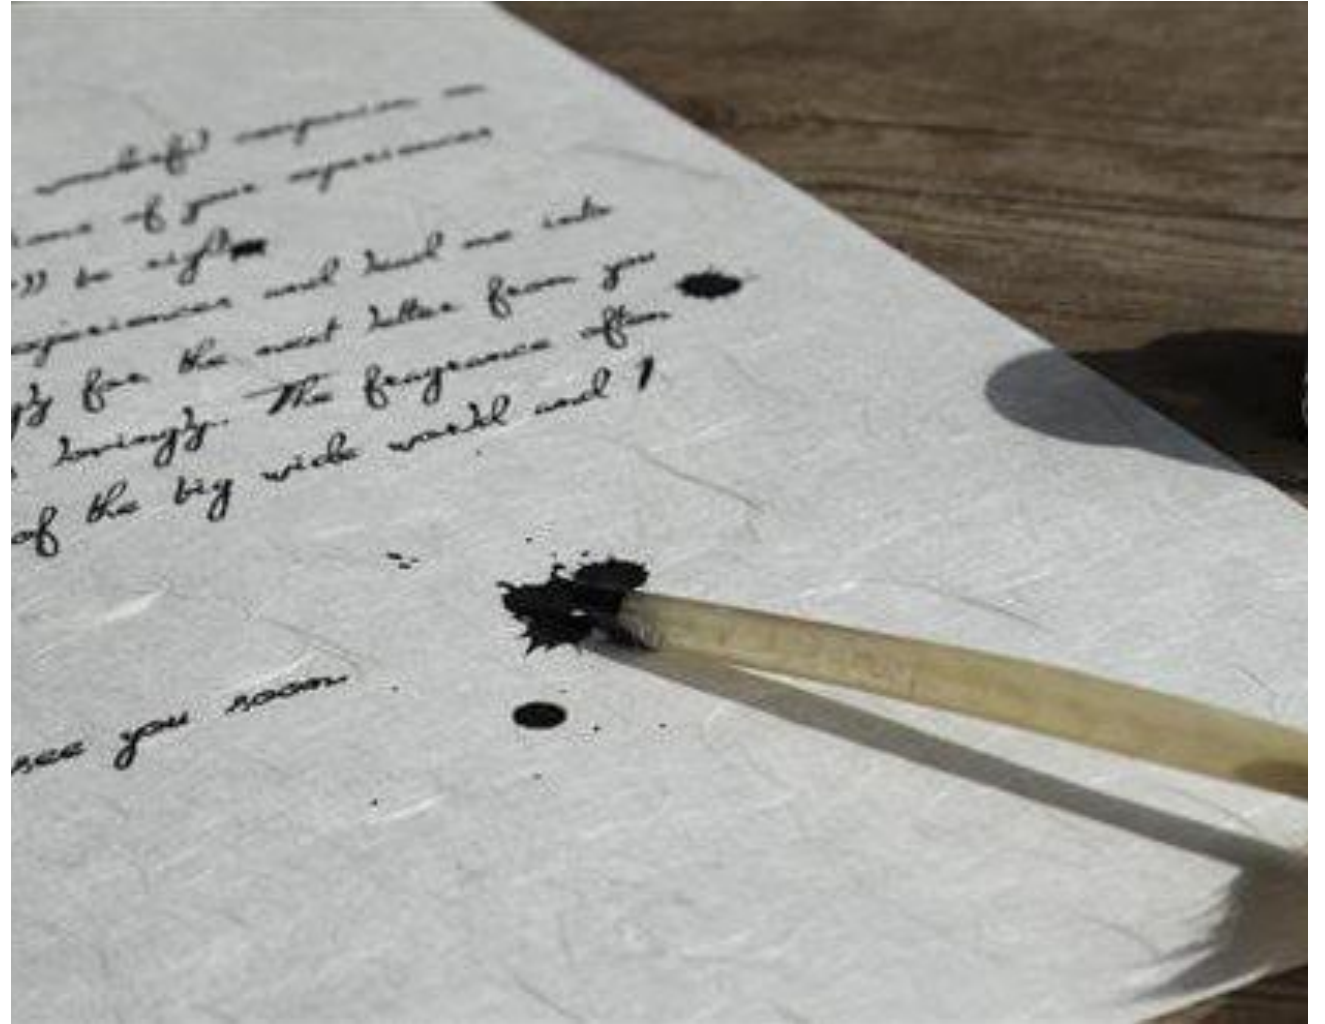 wonderful companion on
of your experiences
be right
experiences and lead me into
for the next letter from you
lovingly. The fragrance often
of the big wide world and I
see you soon.